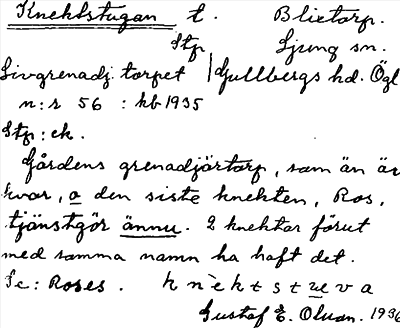 Knektstugan t. Blixtorp.
Stp Ljung sn.
Livgrenadj. torpet Gullbergs hd. Ögl
n:r 56 : kb 1935
Stp: ek.
Gårdens grenadjärtorp, som än är
kvar, o den siste knekten, Ros,
tjänstgör ännu. 2 knektar förut
med samma namn ha haft det.
Se: Roses. knèktstueva
Gustaf E. Olsson. 1936